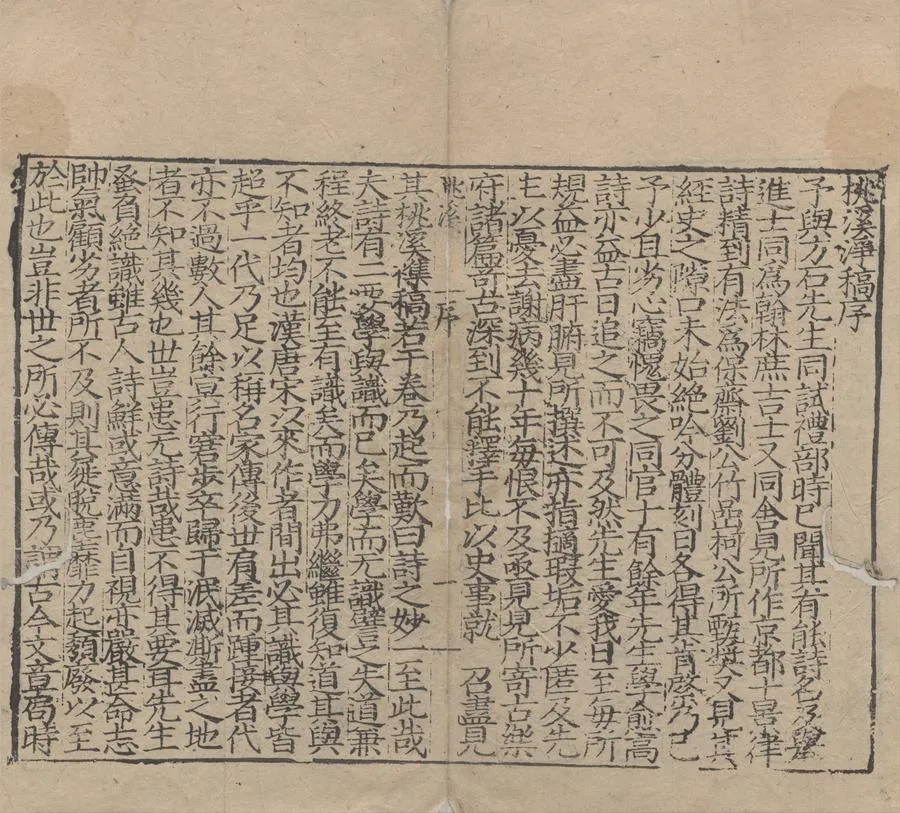 桃溪淨稿序
予與方石先生同試禮部時巳聞其有能詩名及舉
進士同爲翰林庶吉士又同舍見所作京都十景律
詩精到有法爲保齋劉公竹嵒柯公所甄獎又見其
經史之隙口未始絶吟分體刻日各得其肯綮乃已
予少且劣心竊愧畏之同官十有餘年先生學愈高
詩亦益古日追之而不可及然先生愛我日至毎所
規益必盡肝腑見所撰述亦指擿瑕垢不少匿及先
生以憂去謝病幾十年毎恨不及亟見見所寄古樂
府諸篇奇古深到不能釋手比以史事就 召盡見
桃溪 序 一
其桃溪集稿若干卷乃起而歎曰詩之妙一至此哉
夫詩有二要學與識而已矣學而无識譬之失道兼
程終老不能至有識矣而學力弗繼雖復知道其與
不知者均也漢唐宋以來作者間出必其識與學皆
超乎一代乃足以稱名家傳後世有差而踵者代
亦不過數人其餘冥行窘步卒歸于泯滅澌盡之地
者不知其幾也世豈患无詩哉患不得其要耳先生
蚤負絶識雖古人詩鮮或意滿而自視亦嚴其命志
帥氣顧劣者所不及則其脫塵靡力起頽廢以至
於此也豈非世之所必傳哉或乃謂古今文章局時